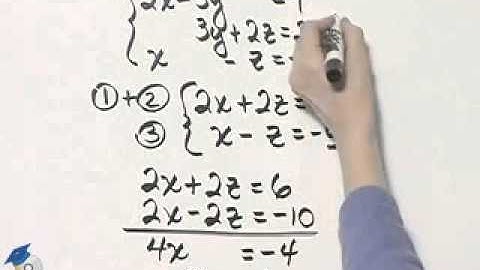 2x-3y =
3y+2z=
x - z=-
①+② 2x+2z=
③ x-z=-5
2x+2z=6
2x-2z=-10
4x =-4